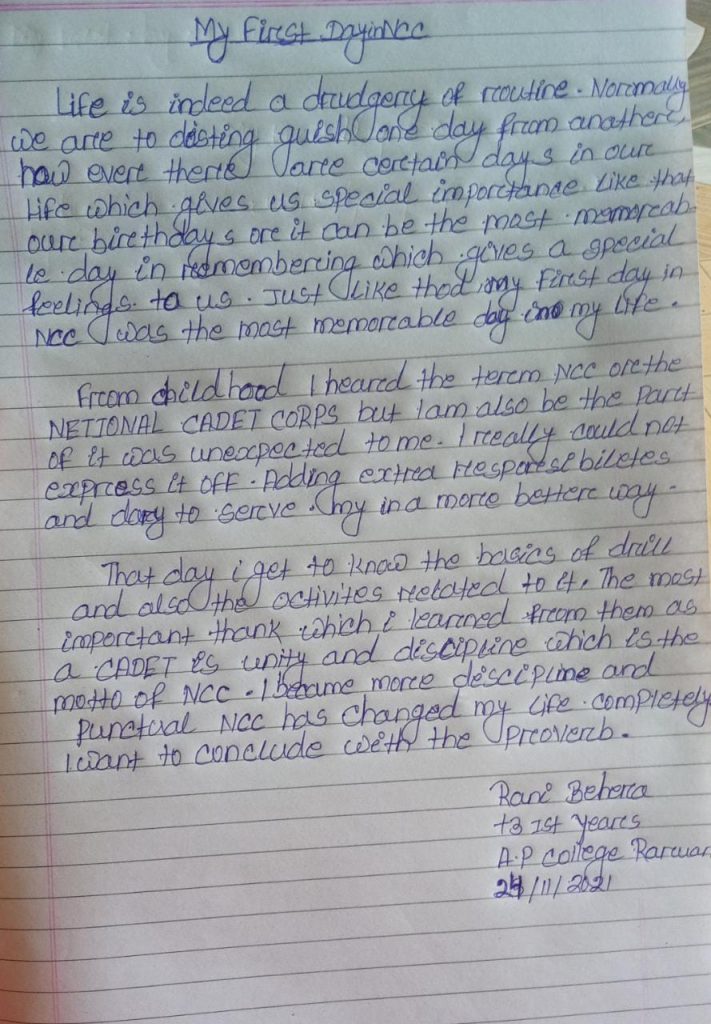 My First Day in Ncc
Life is indeed a drudgery of routine. Noromally
we are to disting guish one day from anathere,
how evere there are certain days in oure
life which gives us special importance like that
oure birethdays ore it can be the most memoreab
le day in remembering which gives a special
feelings to us. Just like thod my first day in
NCC was the most memoreable day in my life.
From childhood I heared the terem NCC ore the
NETIONAL CADET CORPS but I am also be the part
of it was unexpected to me. I really could not
express it off. Adding extra responsibiletes
and dary to serve my in a more bettere way.
That day i get to know the basics of drill
and also the activites related to it. The most
important thank which i learned from them as
a CADET is unity and discipline which is the
motto of NCC. I became more descipline and
punctual NCC has changed my life completely
I want to conclude with the proverb.
Rani Behera
+3 1st years
A.P College Rarua
24/11/2021